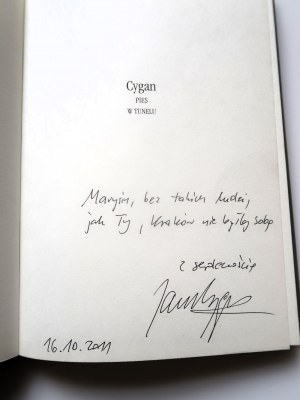 Cygan
PIES
W TUNELU
Marysiu, bez takich ludzi,
jak Ty, Kraków nie byłby sobą
z serdecznością
16.10.2011